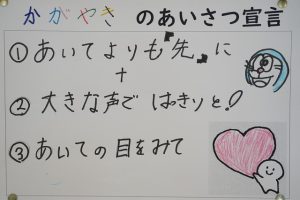 かがやき のあいさつ宣言
①あいてよりも『先』に
+
②大きな声で はっきりと!
③あいての目をみて